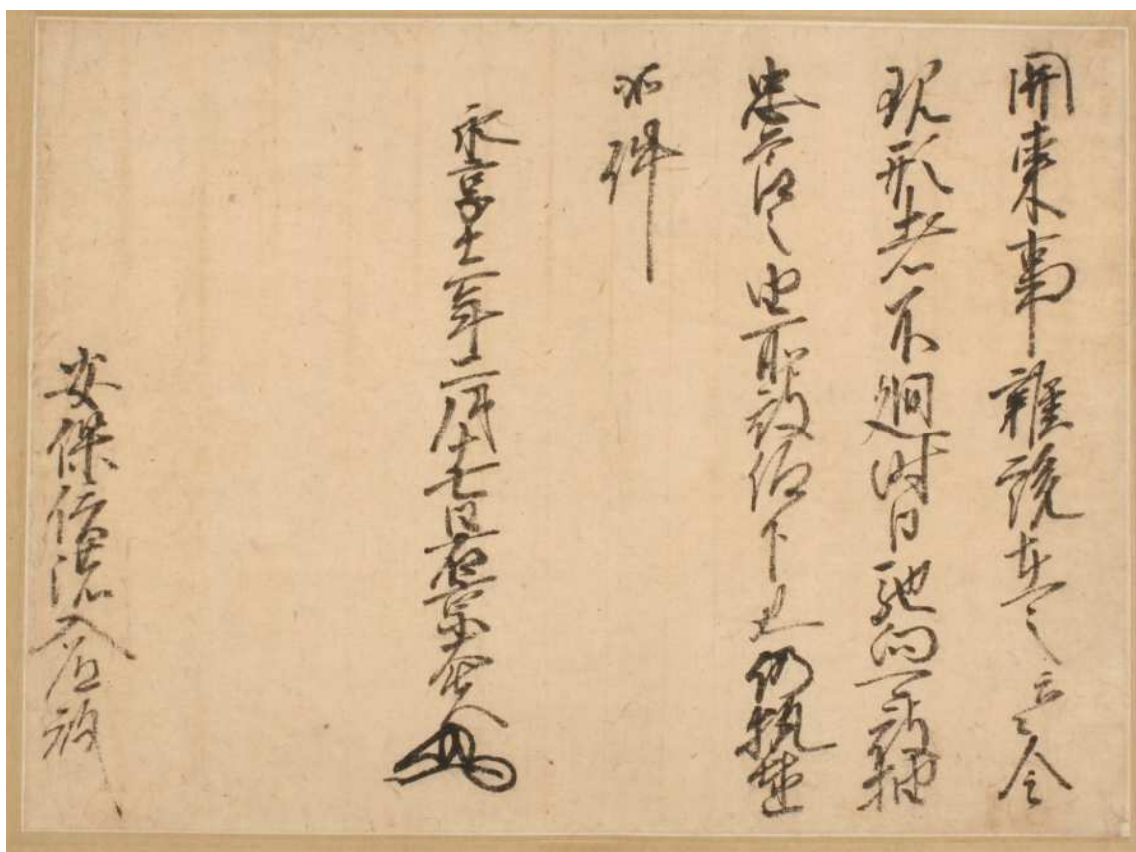 関東事雑説在之云々令
現形者不廻時日馳向可被抽
忠節之由所被仰下也仍執達
如件
永享十二年二月十七日右京大夫
安保信濃入道殿